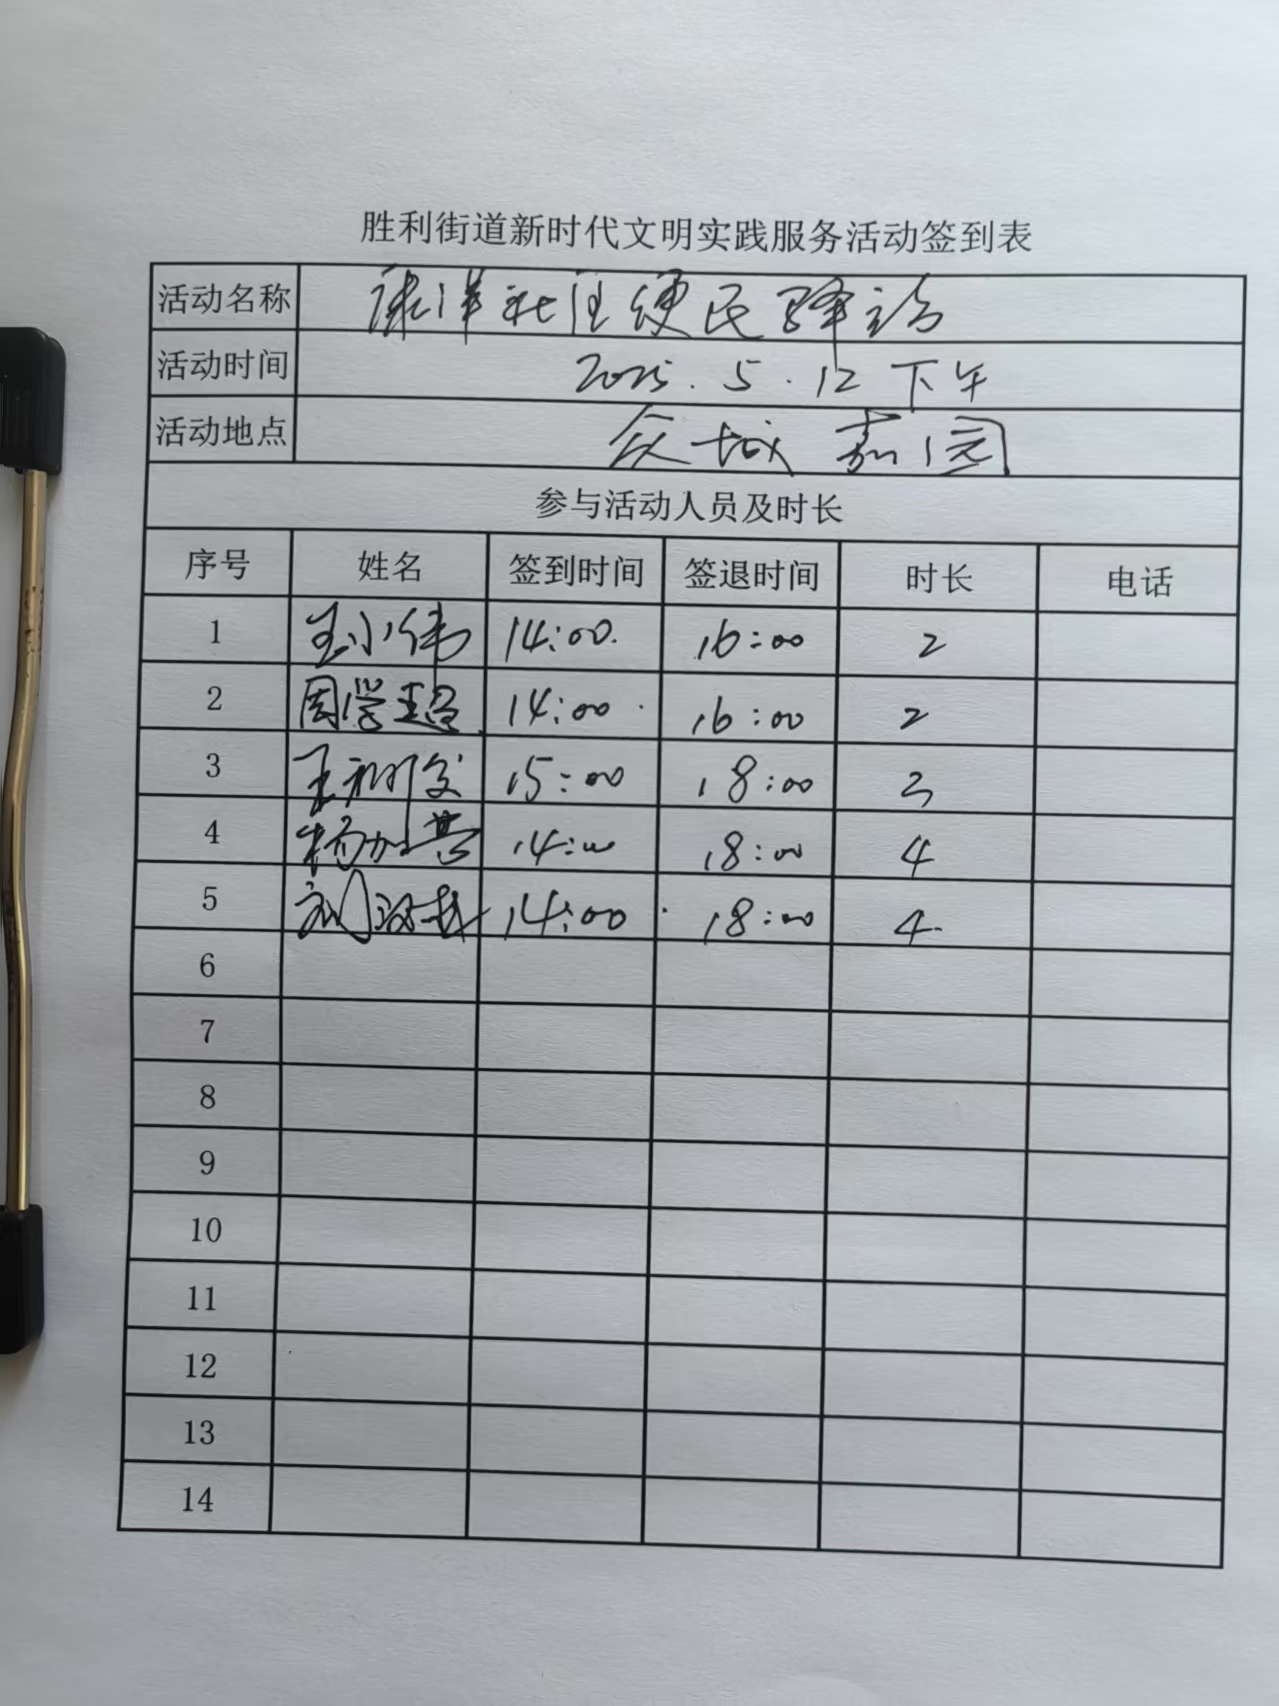 胜利街道新时代文明实践服务活动签到表
活动名称 康洋社区便民驿站
活动时间 2025.5.12 下午
活动地点 众城嘉园
参与活动人员及时长
序号 姓名 签到时间 签退时间 时长 电话
1 王小伟 14:00. 16:00 2
2 周学超 14:00 16:00 2
3 王利 15:00 18:00 3
4 杨加 14:00 18:00 4
5 刘 14:00 18:00 4
6
7
8
9
10
11
12
13
14